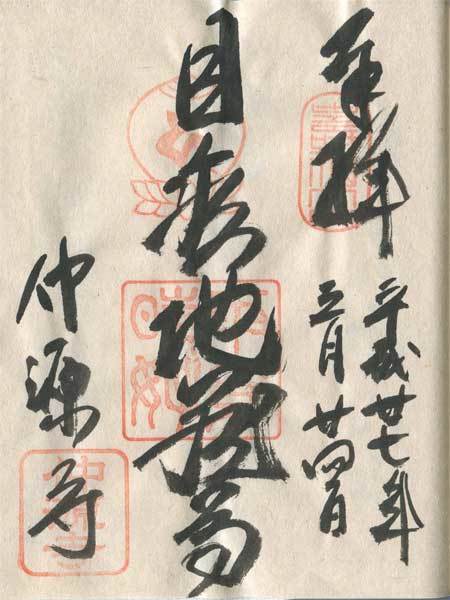 奉拝
平成廿七年
三月廿四日
目疾地蔵尊
仲源寺